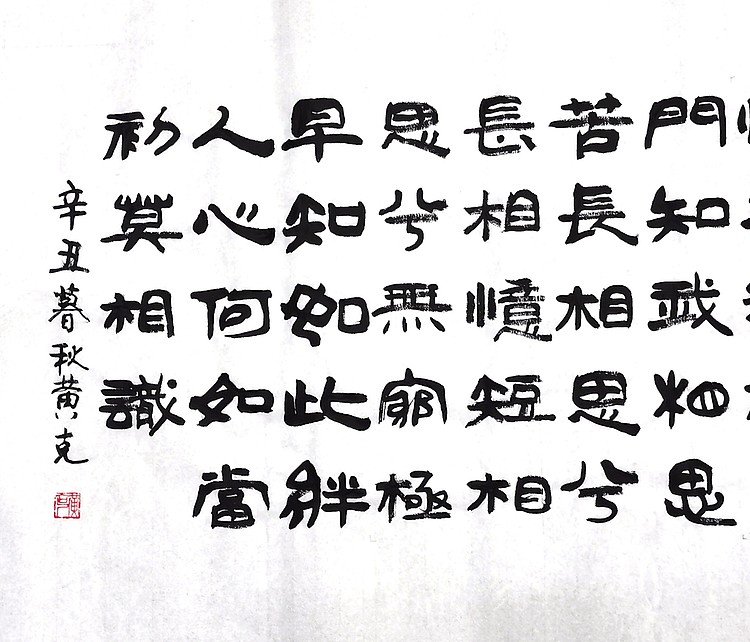 門知我相思
苦長相思兮
長相憶短相
思兮無窮極
早知如此絆
人心何如當
初莫相識
辛丑暮秋黄克